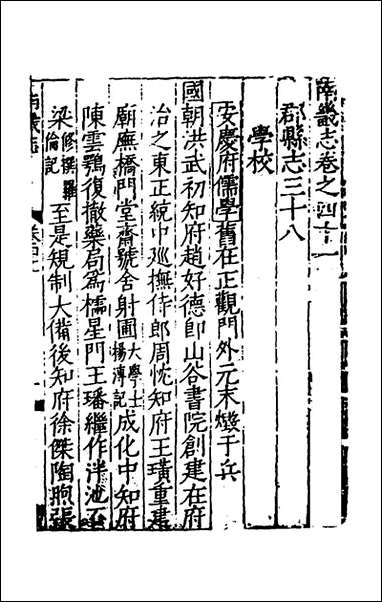 南畿志卷之四十一
郡縣志三十八
學校
安慶府儒學舊在正觀門外元末燬于兵
國朝洪武初知府趙好德卽山谷書院創建在府
治之東正統中巡撫侍郎周忱知府王璜重建
廟廡橋門堂齋號舍射圃大學士楊溥記成化中知府
陳雲鶚復撤藥局爲櫺星門王璠繼作泮池石
梁修撰羅倫記至是規制大備後知府徐傑陶煦張